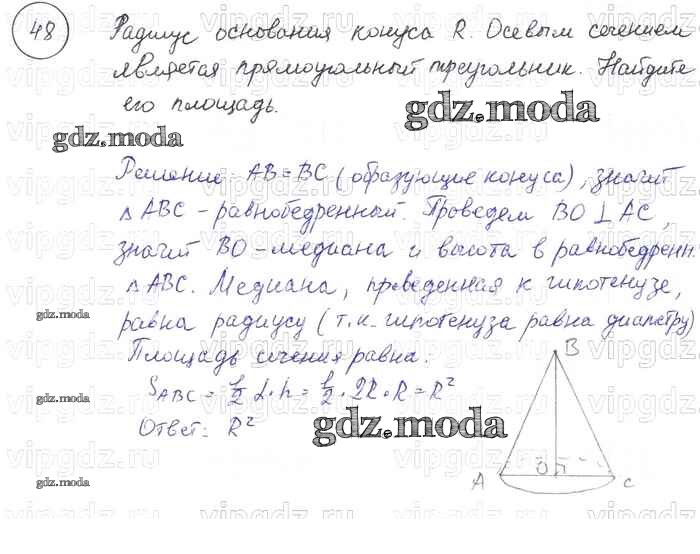 48
Радиус основания конуса R. Осевым сечением
является прямоугольный треугольник. Найдите
его площадь.
gdz.moda
gdz.moda
Решение: AB=BC (образующие конуса), значит
△ABC - равнобедренный. Проведем BO⊥AC,
значит BO - медиана и высота в равнобедренн.
△ABC. Медиана, проведенная к гипотенузе,
gdz.moda
равна радиусу (т.к. гипотенуза равна диаметру)
Площадь сечения равна:
S ABC = 1/2 d·h = 1/2·2R·R = R²
gdz.moda
Ответ: R²
gdz.moda
gdz.moda
B
A
O
C
vipgdz.ru